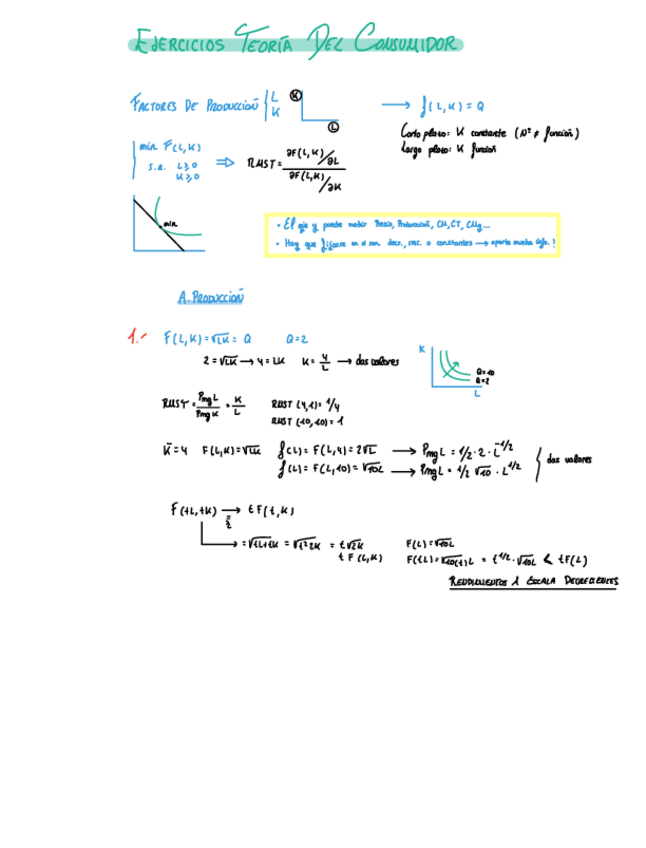 EJERCICIOS TEORÍA DEL CONSUMIDOR
FACTORES DE PRODUCCIÓN { L K
K
L
→ f(L,K) = Q
Corto plazo: K constante (Nº ≠ función)
Largo plazo: K función
min F(L,K)
s.a. L≥0
K≥0
⇒ RMST = ∂F(L,K)/∂L / ∂F(L,K)/∂K
min.
• El eje y puede medir Precio, Producción, CM, CT, CMg...
• Hay que fijarse en si son decr., crec. o constantes → aporta mucha info.!
A. PRODUCCIÓN
1.- F(L,K) = √LK = Q Q=2
2 = √LK → 4 = LK K = 4/L → das valores
K
Q=10
Q=2
L
RMST = PmgL/PmgK = K/L RMST (4,1) = 1/4
RMST (10,10) = 1
K̄=4 F(L,K)=√LK f(L) = F(L,4) = 2√L → PmgL = 1/2 · 2 · L^-1/2
f(L) = F(L,10) = √10L → PmgL = 1/2 √10 · L^1/2
} das valores
F(tL,tK) → tF(t,K)
= √tL+tK = √t²2K = t√2K F(L) = √10L
t F(L,K) F(tL) = √10(t)L = t^1/2 · √10L < tF(L)
RENDIMIENTOS A ESCALA DECRECIENTES